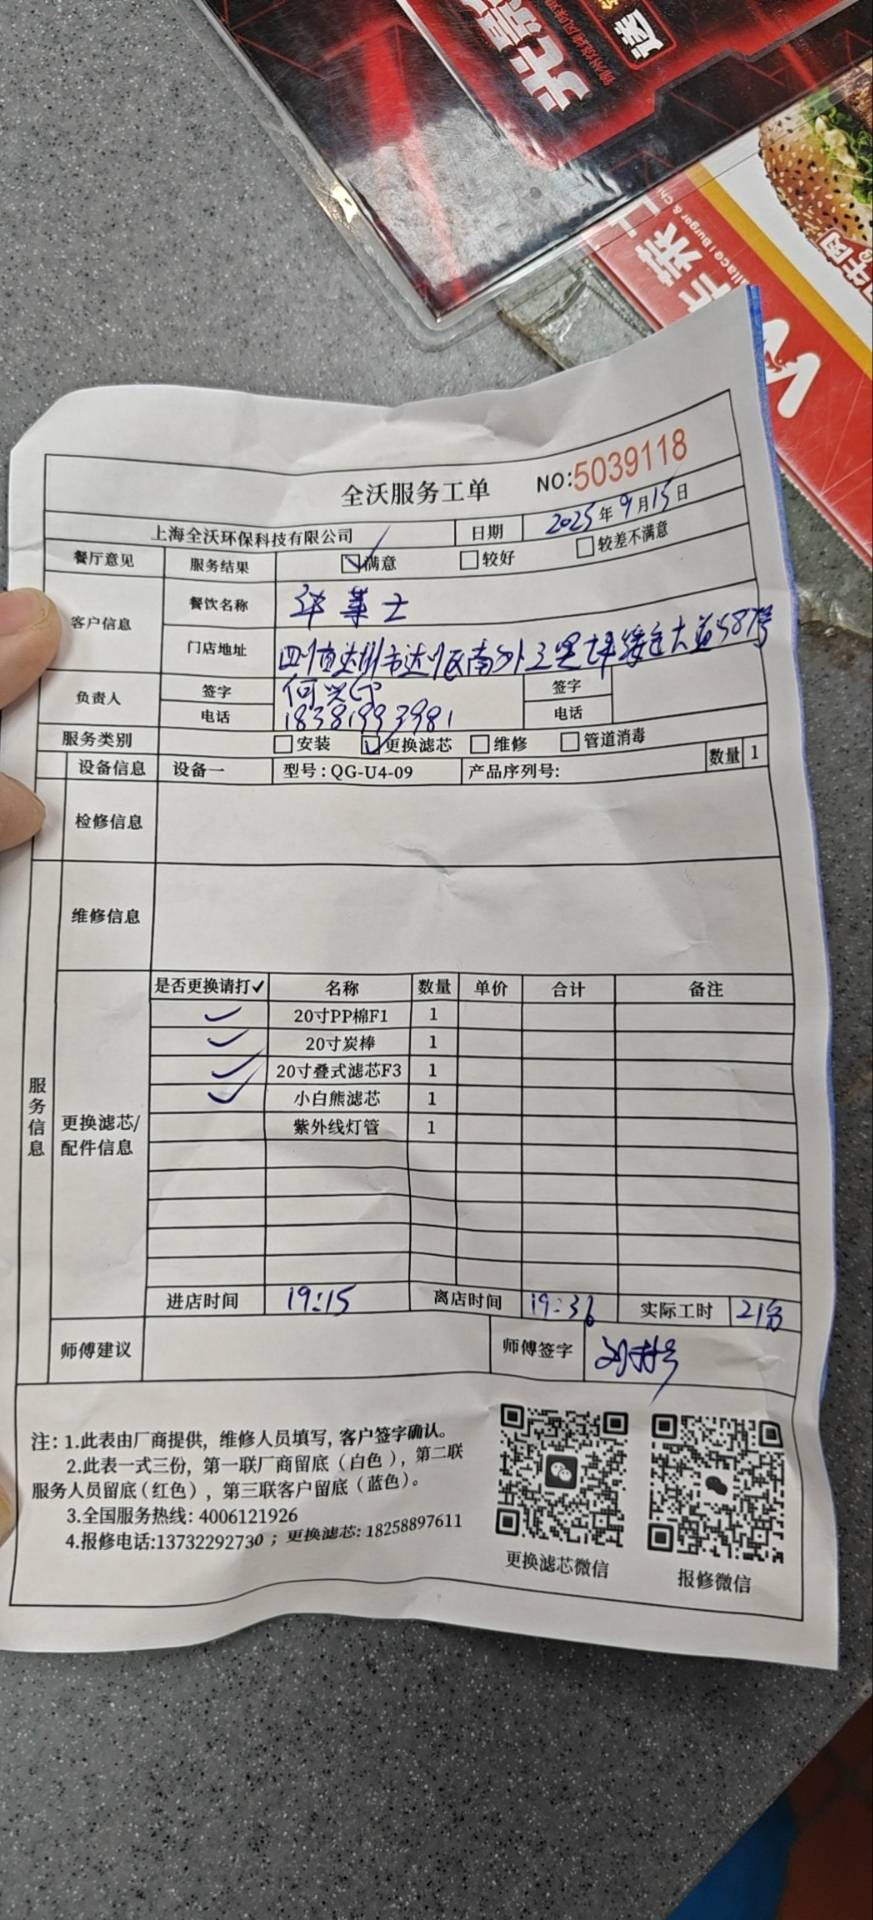 送
华莱士
Burger & Chi
牛肉
全沃服务工单 NO:5039118
上海全沃环保科技有限公司 日期 2025年9月15日
餐厅意见 服务结果 ☑满意 □较好 □较差不满意
客户信息 餐饮名称 华莱士
门店地址 四川省达州市达川区南外
负责人 签字 签字
电话 18381993981 电话
服务类别 □安装 ☑更换滤芯 □维修 □管道消毒
设备信息 设备一 型号:QG-U4-09 产品序列号: 数量 1
检修信息
维修信息
服务信息
更换滤芯/配件信息
是否更换请打✓ 名称 数量 单价 合计 备注
✓ 20寸PP棉F1 1
✓ 20寸炭棒 1
✓ 20寸叠式滤芯F3 1
✓ 小白熊滤芯 1
紫外线灯管 1
进店时间 19:15 离店时间 19:36 实际工时 21分
师傅建议 师傅签字
注: 1.此表由厂商提供, 维修人员填写, 客户签字确认。
2.此表一式三份, 第一联厂商留底 (白色), 第二联
服务人员留底(红色), 第三联客户留底 (蓝色)。
3.全国服务热线: 4006121926
4.报修电话:13732292730 ; 更换滤芯: 18258897611
更换滤芯微信 报修微信